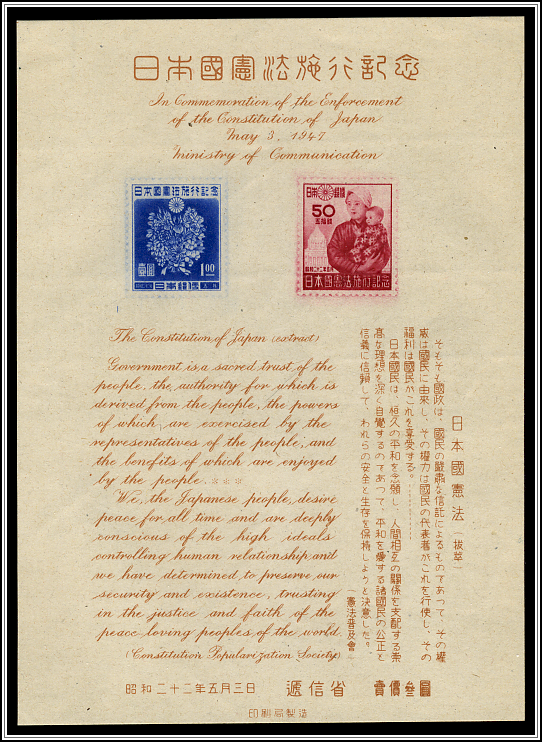 日本國憲法施行記念
In Commemoration of the Enforcement
of the Constitution of Japan
May 3, 1947
Ministry of Communication
日本國憲法施行記念
1.00
壹圓
日本郵便
日本郵便
50
五拾錢
昭和二十二年五月
日本國憲法施行記念
The Constitution of Japan (extract)
Government is a sacred trust of the
people, the authority for which is
derived from the people, the powers
of which are exercised by the
representatives of the people, and
the benefits of which are enjoyed
by the people. ***
We, the Japanese people, desire
peace for all time and are deeply
conscious of the high ideals
controlling human relationship, and
we have determined to preserve our
security and existence, trusting
in the justice and faith of the
peace loving peoples of the world.
(Constitution Popularization Society)
日本國憲法（拔萃）
そもそも國政は、國民の嚴肅な信託によるものであつて、その權
威は國民に由來し、その權力は國民の代表者がこれを行使し、その
福利は國民がこれを享受する。………
日本國民は、恒久の平和を念願し、人間相互の關係を支配する崇
高な理想を深く自覺するのであつて、平和を愛する諸國民の公正と
信義に信賴して、われらの安全と生存を保持しようと決意した。
（憲法普及會）
昭和二十二年五月三日 遞信省 賣價參圓
印刷局製造